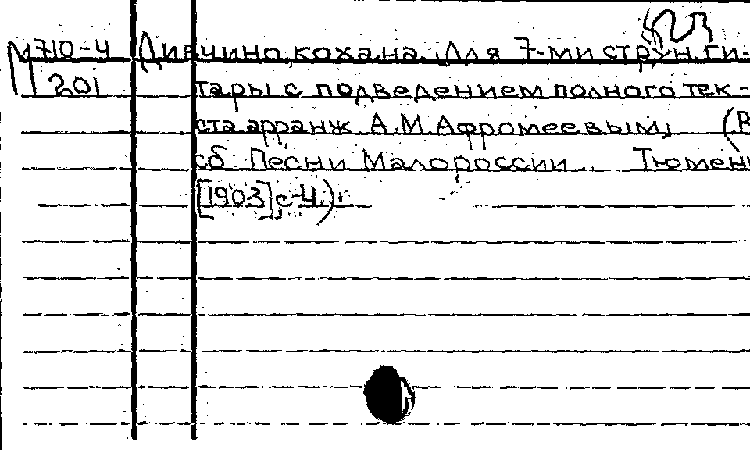 М710-4 Дивчино кохана. Для 7-ми струн. ги-
201 тары с подведением полного тек-
ста арранж. А.М. Афромеевым, (В
сб. Песни Малороссии... Тюмень
[1903] с. 4.).